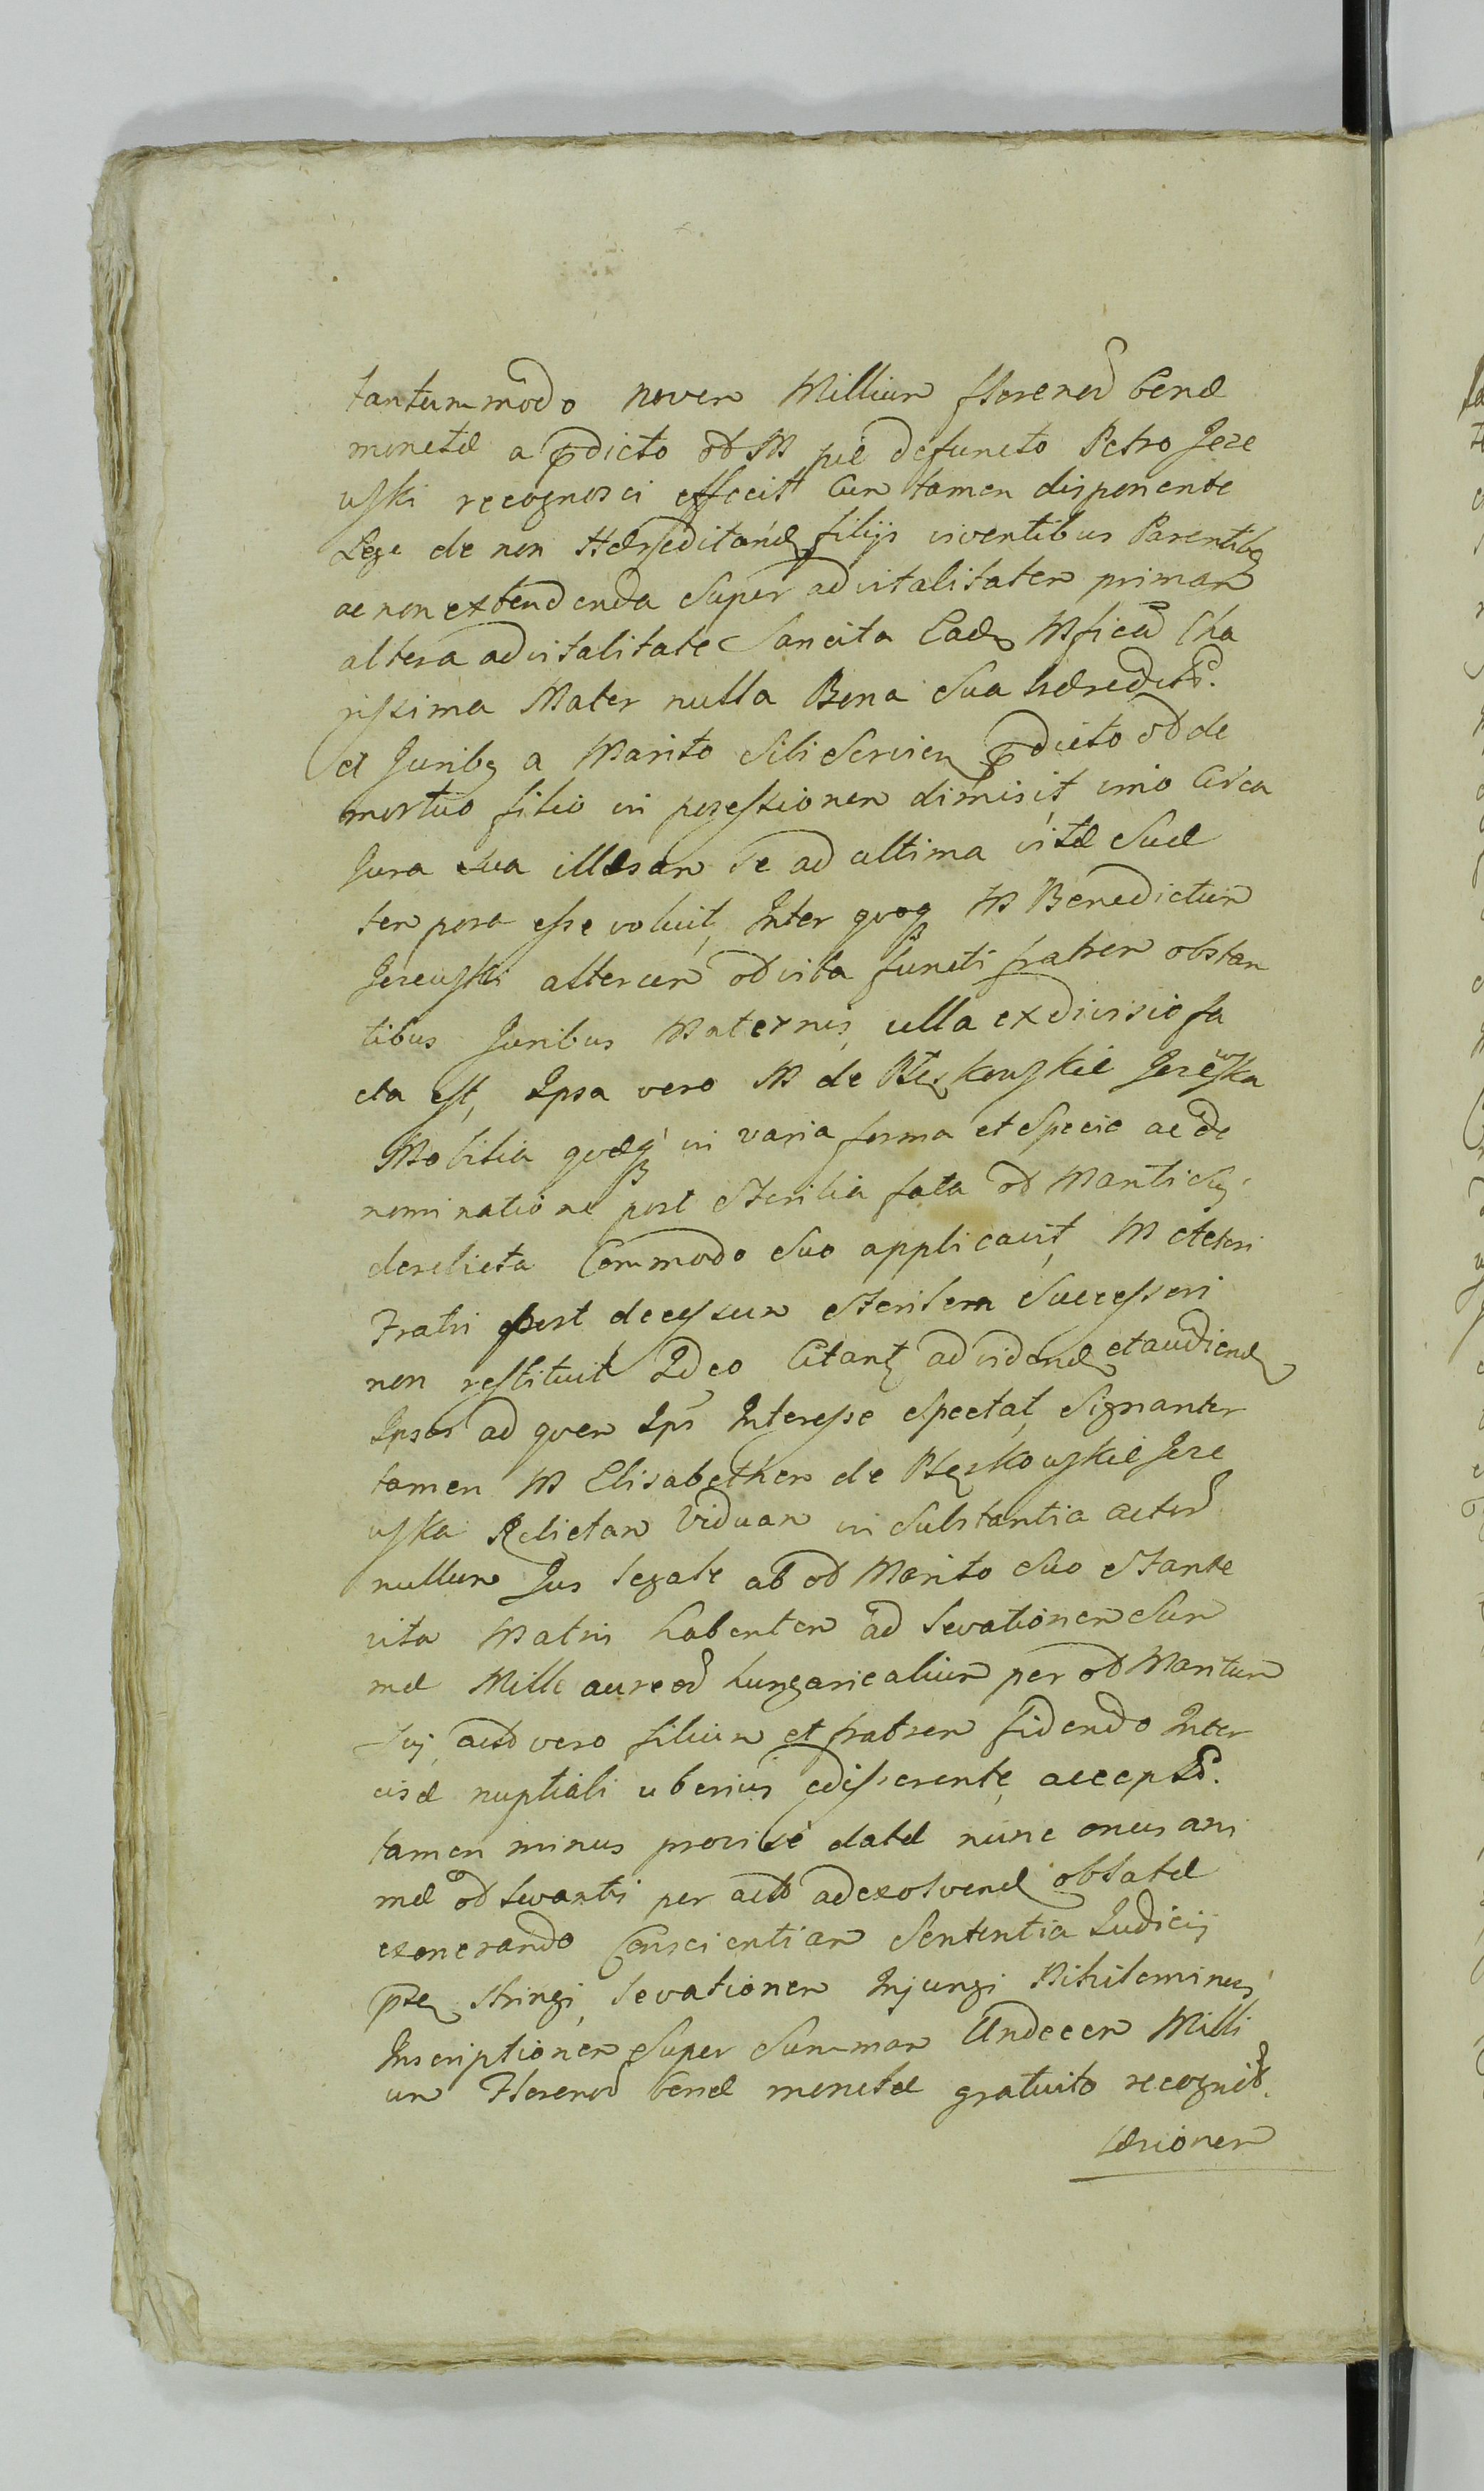 tantummodo novem Millium florenor bonæ
monetæ a pdicto od M pie defuncto Petro Jeze
wski recognosci effecit Cum tamen disponente
Lege de non Hæreditand filijs viventibus Parentibq
ac non extendenda Super advitalitatem primam
altera advitalitate Sancita Eadem Mficæ Cha
rissima Mater nulla Bona Sua hæredit.
et Juribq a Marito Sibi Servien pdicto od de
mortuo filio in possessionem dimisit, imo Circa
Jura sua illæsam se ad ultima vitæ Suæ
tempora esse voluit, Inter quoq M Benedictum
Jezewski alterum od vita functi fratrem obstan
tibus Juribus Maternis, ulla exdivisio fa
cta est, Ipsa vero M de Jezewska
Mobilia quæq in varia forma et Specie ac de
nominatione post Sterilia fata od Mariti Sui
derelicta Commodo Suo applicavit, M Actori
Fratri post decessum Sterilem Successori
non restituit Ideo Citant ad videnđ et audienđ
Ipsos ad quem Ips Interesse Spectat, Signanter
tamen M Elisabetham de Jeze
wska Relictam Viduam in Substantia actor
nullum Jus legale ab od Marito Suo Stante
vita Matris habentem ad levationem Sum
mæ Mille aureor hungaricalium per od Maritum
Sui, act vero filium et fratrem fidendo Inter
cisæ nuptiali uberius edisserente, accept.
tamen minus provise datæ nunc onus ani
mæ od levanti per act ad exolvend oblatæ
exonerando Conscientiam Sententia Judicij
pte stringi, levationem Injungi Nihilominus
Inscriptionem Super Summam Undecem Milli
um Florenor bonæ monetæ gratuito recognit.
læsionem